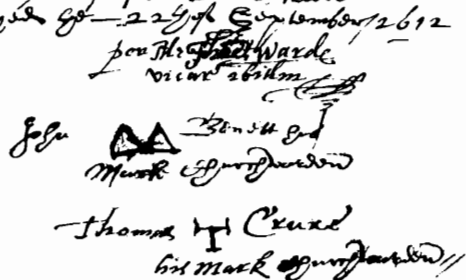 the 22th of September 1612
per me Warde
vicar ibidm
John Benett his
Mark Churchwarden
Thomas Crux
his Mark Churchwarden